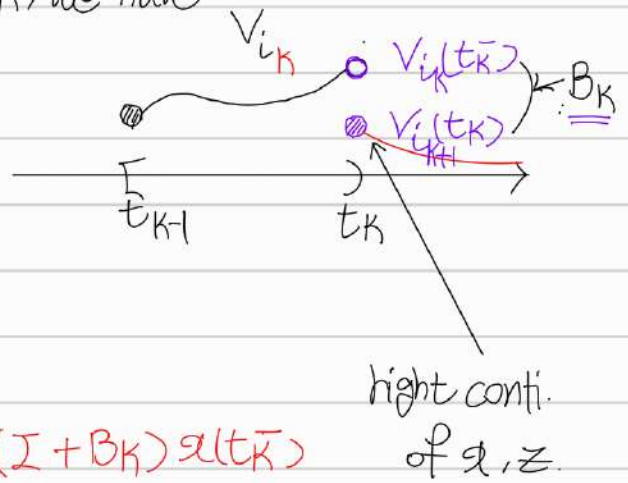 we have
V_{i_K}
V_{i_K}(t_K^-)
B_K
V_{i_{K+1}}(t_K)
t_{K-1}
t_K
right conti.
of x, z.
(I + B_K) x(t_K^-)